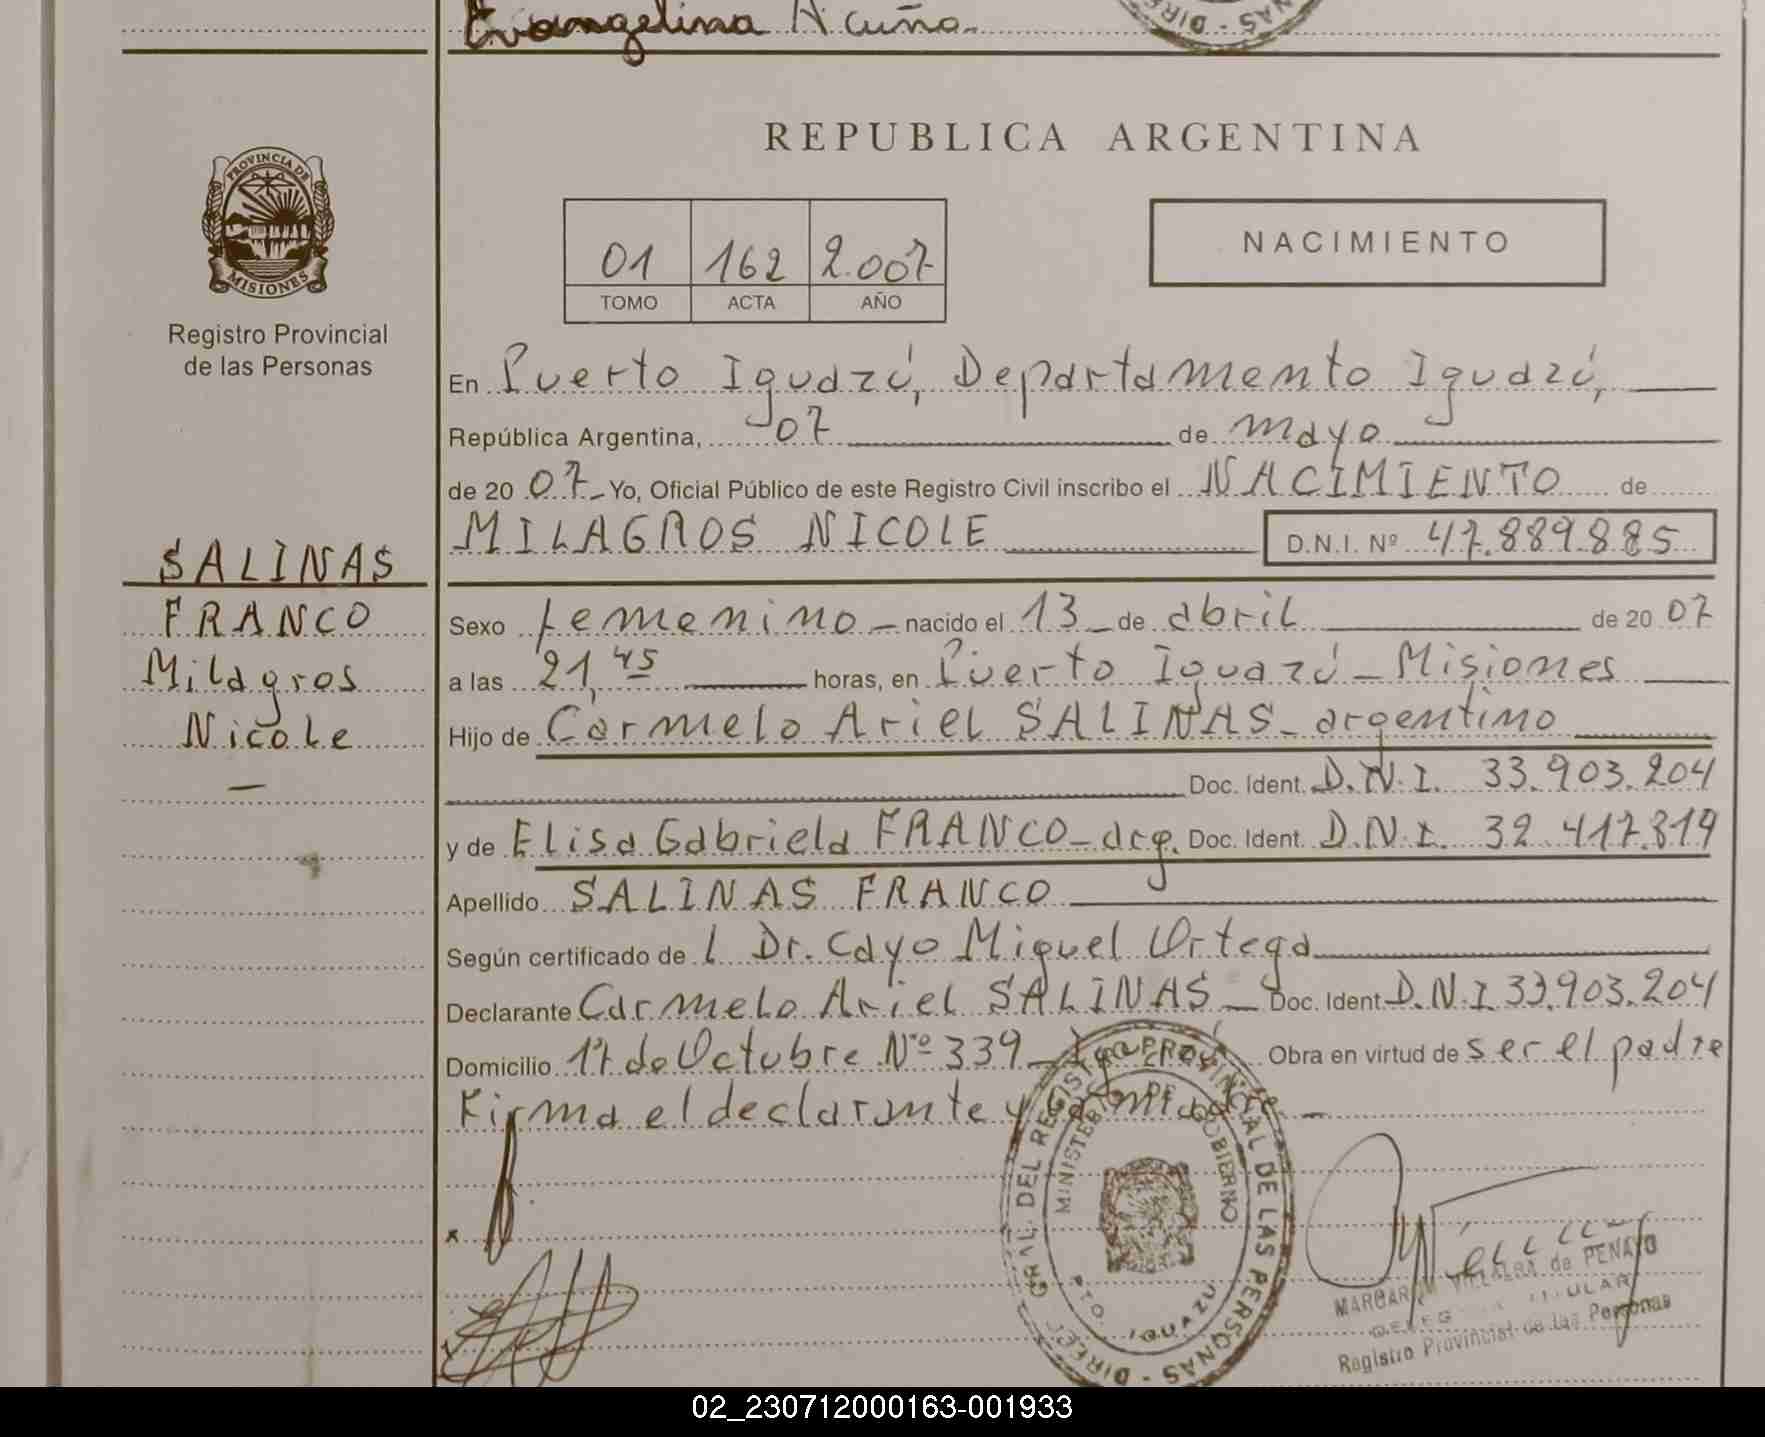 Evangelina Acuña.
REPUBLICA ARGENTINA
PROVINCIA DE
MISIONES
Registro Provincial
de las Personas
01 162 2.007
TOMO ACTA AÑO
NACIMIENTO
En Puerto Iguazú, Departamento Iguazú,
República Argentina, 07 de mayo
de 20 07 Yo, Oficial Público de este Registro Civil inscribo el NACIMIENTO de
MILAGROS NICOLE D.N.I. Nº 47.889.885
SALINAS
FRANCO
Milagros
Nicole
Sexo femenino nacido el 13 de abril de 20 07
a las 21,45 horas, en Puerto Iguazú - Misiones
Hijo de Carmelo Ariel SALINAS - argentino
Doc. Ident. D.N.I. 33.903.204
y de Elisa Gabriela FRANCO - arg. Doc. Ident. D.N.I. 32.417.819
Apellido SALINAS FRANCO
Según certificado de l Dr. Cayo Miguel Ortega
Declarante Carmelo Ariel SALINAS - Doc. Ident. D.N.I 33.903.204
Domicilio 17 de Octubre Nº 339 - Obra en virtud de ser el padre
Firma el declarante y
GRAL. DEL REGISTRO PROVINCIAL DE LAS PERSONAS - DIREC
MINISTERIO DE GOBIERNO
PTO. IGUAZU
MARGARITA VILLALBA de PENAYO
TITULAR
Registro Provincial de las Personas
02_230712000163-001933